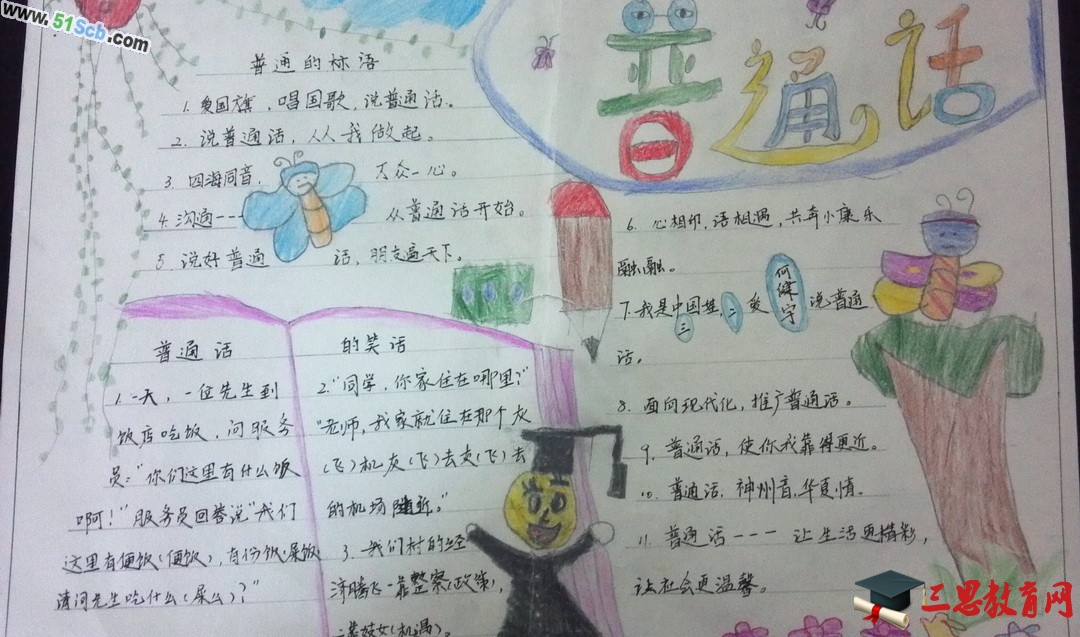 www.51Scb.com
普通话
普通的标语
1. 爱国旗,唱国歌,说普通话。
2. 说普通话,从我做起。
3. 四海同音, 万众一心。
4. 沟通--- 从普通话开始。
5. 说好普通 话,朋友遍天下。
普通话 的笑话
1. 一天,一位先生到
饭店吃饭,问服务
员:"你们这里有什么饭
啊!"服务员回答说"我们
这里有便饭(便饭),有份饭(粪饭
请问先生吃什么(屎么)?"
2."同学,你家住在哪里?"
"老师,我家就住在那个灰
(飞)机灰(飞)去灰(飞)去
的机场附近。"
3. 我们村的经
济腾飞一靠警察(政策),
二靠妓女(机遇)。
6. 心相印,语相遇,共奔小康乐
融融。
7. 我是中国娃, 爱 说普通
二
三
何健宇
话。
8. 面向现代化,推广普通话。
9. 普通话,使你我靠得更近。
10. 普通话,神州音,华夏情。
11. 普通话---让生活更精彩,
让社会更温馨。
三思教育网